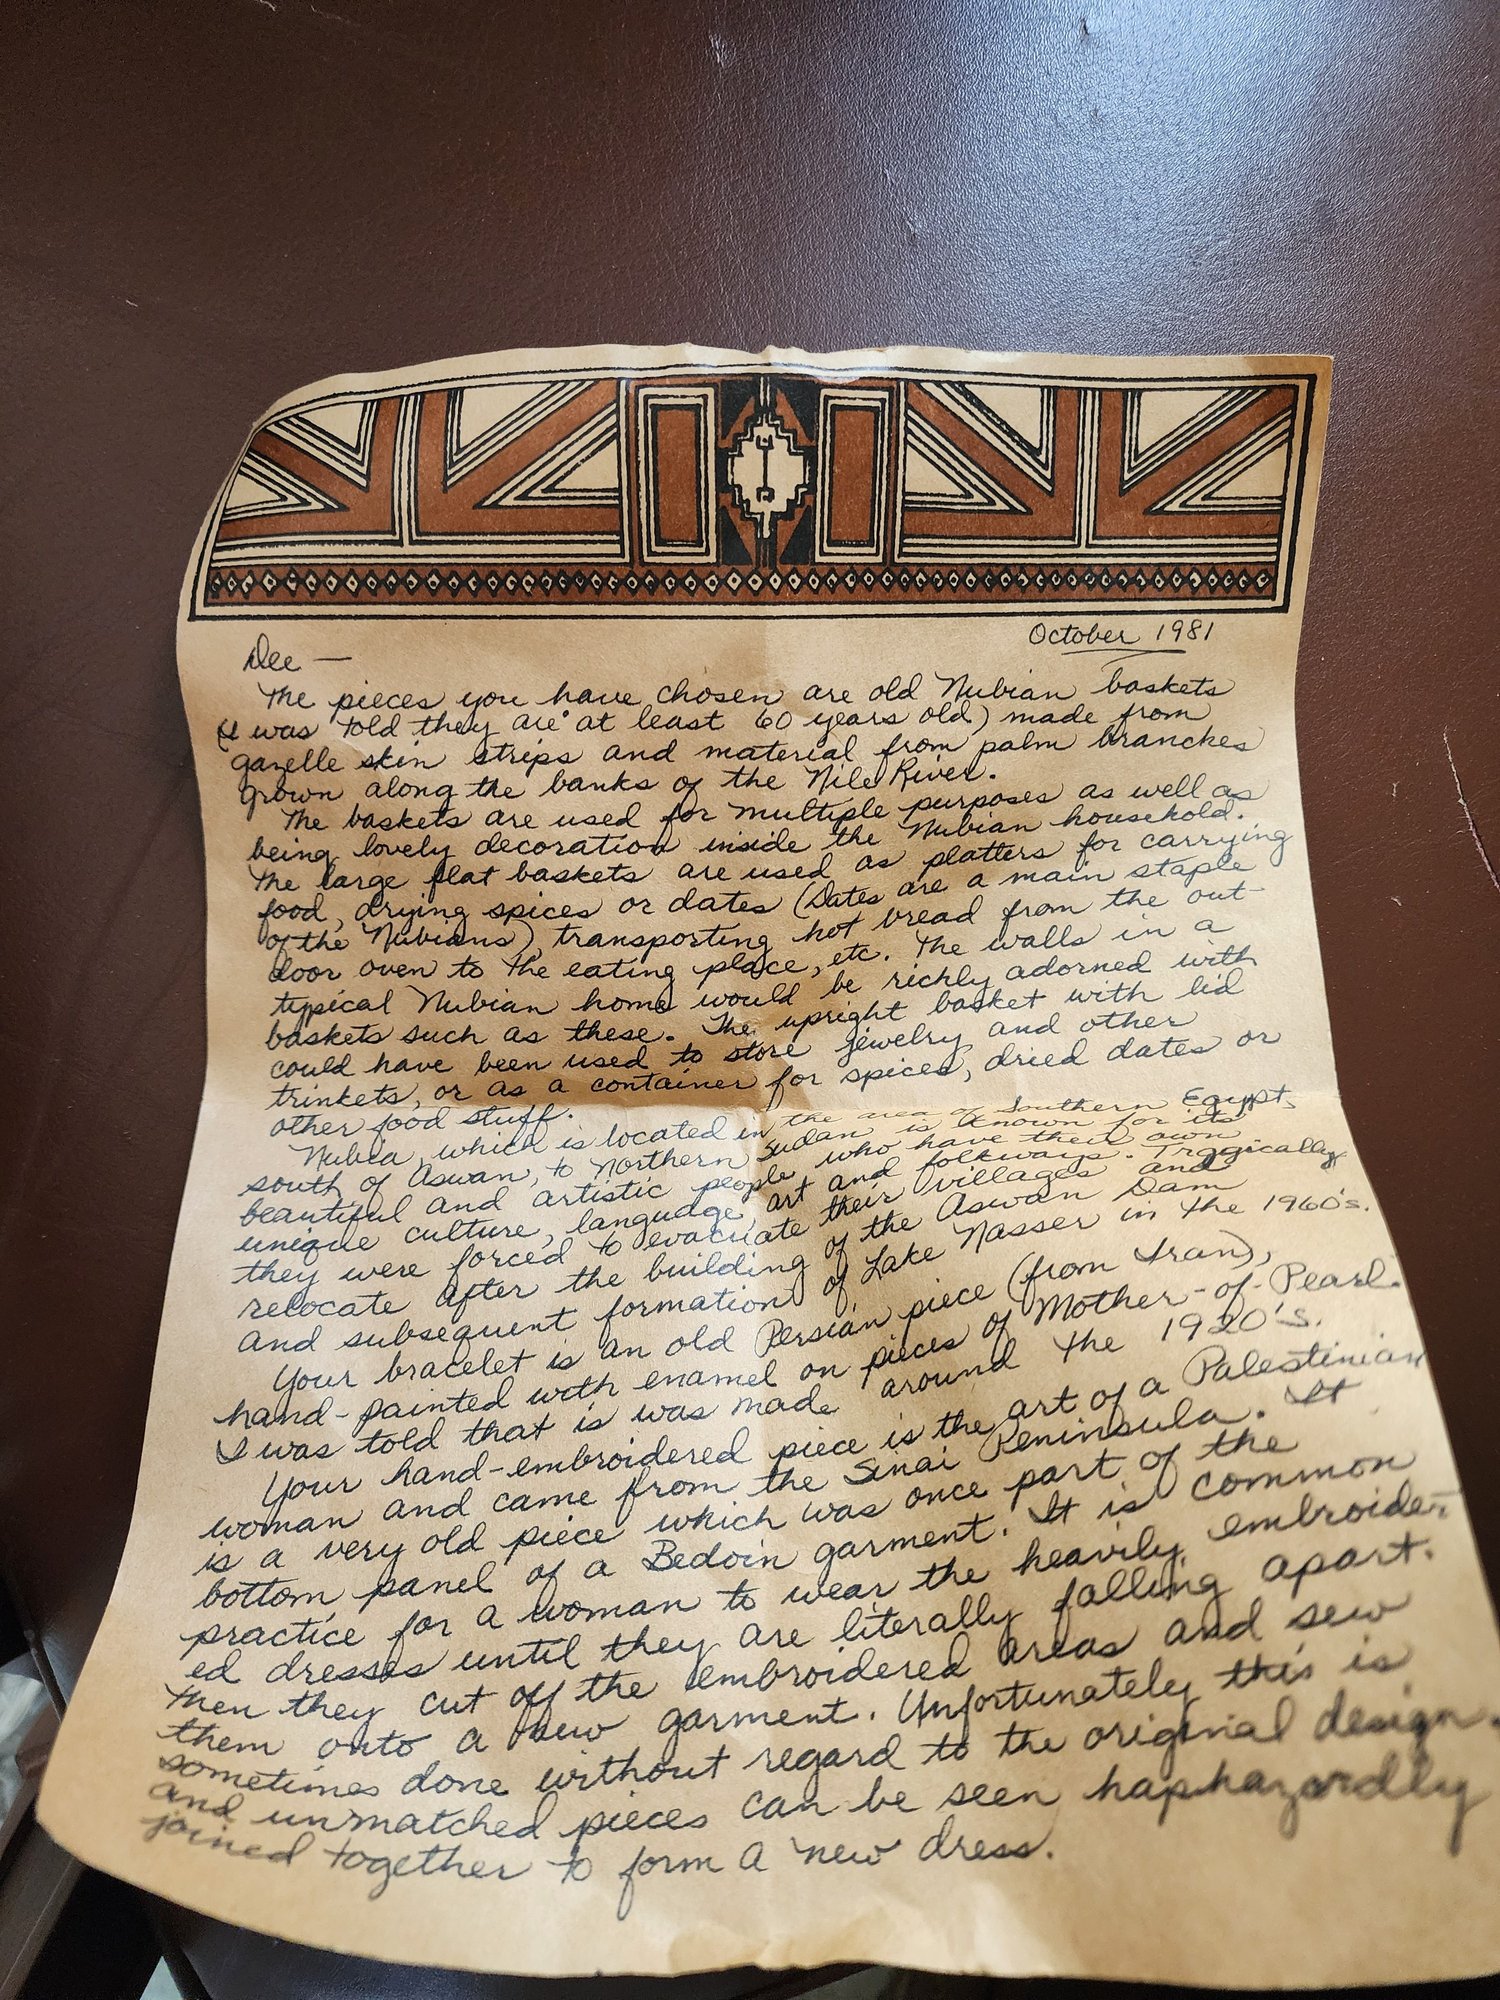 October 1981
Dee —
The pieces you have chosen are old Nubian baskets
(I was told they are at least 60 years old) made from
gazelle skin strips and material from palm branches
grown along the banks of the Nile River.
The baskets are used for multiple purposes as well as
being lovely decoration inside the Nubian household.
The large flat baskets are used as platters for carrying
food, drying spices or dates (Dates are a main staple
of the Nubians), transporting hot bread from the out-
door oven to the eating place, etc. The walls in a
typical Nubian home would be richly adorned with
baskets such as these. The upright basket with lid
could have been used to store jewelry and other
trinkets, or as a container for spices, dried dates or
other food stuff.
Nubia, which is located in the area of Southern Egypt,
south of Aswan, to Northern Sudan is known for its
beautiful and artistic people who have their own
unique culture, language, art and folkways. Tragically,
they were forced to evacuate their villages and
relocate after the building of the Aswan Dam
and subsequent formation of Lake Nasser in the 1960's.
Your bracelet is an old Persian piece (from Iran),
hand-painted with enamel on pieces of Mother-of-Pearl.
I was told that is was made around the 1920's.
Your hand-embroidered piece is the art of a Palestinian
woman and came from the Sinai Peninsula. It
is a very old piece which was once part of the
bottom panel of a Bedoin garment. It is common
practice for a woman to wear the heavily embroider-
ed dresses until they are literally falling apart.
Then they cut off the embroidered areas and sew
them onto a new garment. Unfortunately this is
sometimes done without regard to the original design.
and unmatched pieces can be seen haphazardly
joined together to form a new dress.